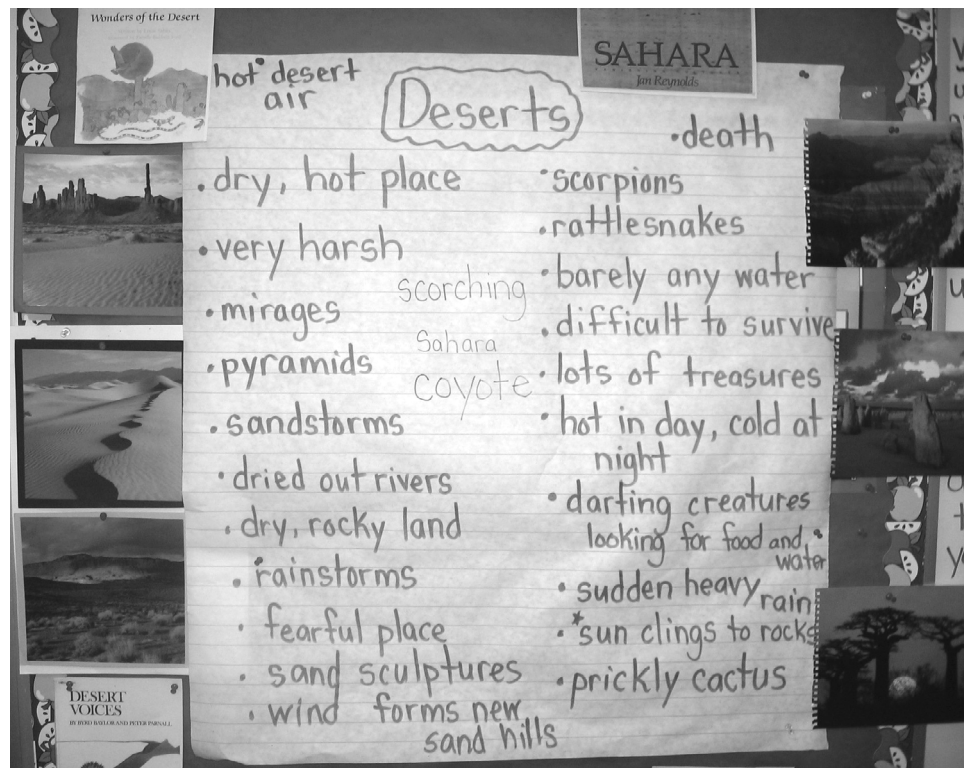 Wonders of the Desert
SAHARA
Jan Reynolds
hot desert
air
Deserts
• death
• dry, hot place
• very harsh
• mirages
• pyramids
• sandstorms
• dried out rivers
• dry, rocky land
• rainstorms
• fearful place
• sand sculptures
• wind forms new
sand hills
scorching
Sahara
coyote
• scorpions
• rattlesnakes
• barely any water
• difficult to survive
• lots of treasures
• hot in day, cold at
night
• darting creatures
looking for food and
water
• sudden heavy rain
• *sun clings to rocks
• prickly cactus
DESERT
VOICES
BY BYRD BAYLOR AND PETER PARNALL